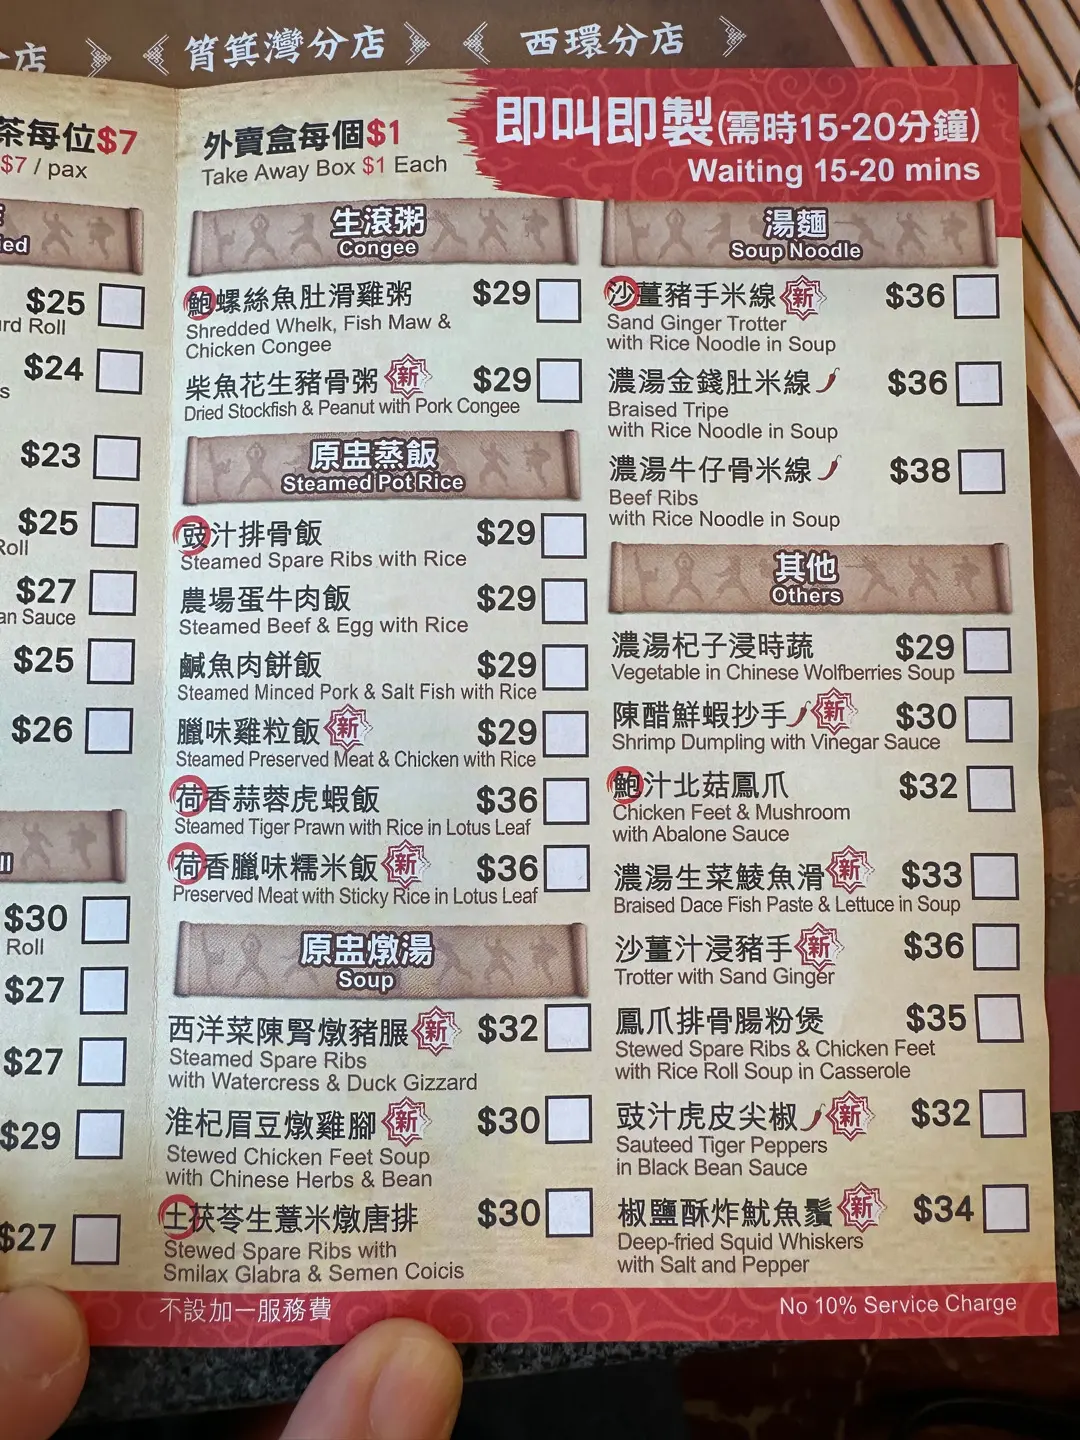 分店
筲箕灣分店
西環分店
茶每位$7
$7 / pax
外賣盒每個$1
Take Away Box $1 Each
即叫即製(需時15-20分鐘)
Waiting 15-20 mins
$25
$24
$23
$25
Roll
$27
an Sauce
$25
$26
$30
Roll
$27
$27
$29
$27
生滾粥
Congee
鮑螺絲魚肚滑雞粥 $29
Shredded Whelk, Fish Maw &
Chicken Congee
柴魚花生豬骨粥 新 $29
Dried Stockfish & Peanut with Pork Congee
原盅蒸飯
Steamed Pot Rice
豉汁排骨飯 $29
Steamed Spare Ribs with Rice
農場蛋牛肉飯 $29
Steamed Beef & Egg with Rice
鹹魚肉餅飯 $29
Steamed Minced Pork & Salt Fish with Rice
臘味雞粒飯 新 $29
Steamed Preserved Meat & Chicken with Rice
荷香蒜蓉虎蝦飯 $36
Steamed Tiger Prawn with Rice in Lotus Leaf
荷香臘味糯米飯 新 $36
Preserved Meat with Sticky Rice in Lotus Leaf
原盅燉湯
Soup
西洋菜陳腎燉豬𦟌 新 $32
Steamed Spare Ribs
with Watercress & Duck Gizzard
淮杞眉豆燉雞腳 新 $30
Stewed Chicken Feet Soup
with Chinese Herbs & Bean
土茯苓生薏米燉唐排 $30
Stewed Spare Ribs with
Smilax Glabra & Semen Coicis
湯麵
Soup Noodle
沙薑豬手米線 新 $36
Sand Ginger Trotter
with Rice Noodle in Soup
濃湯金錢肚米線 $36
Braised Tripe
with Rice Noodle in Soup
濃湯牛仔骨米線 $38
Beef Ribs
with Rice Noodle in Soup
其他
Others
濃湯杞子浸時蔬 $29
Vegetable in Chinese Wolfberries Soup
陳醋鮮蝦抄手 新 $30
Shrimp Dumpling with Vinegar Sauce
鮑汁北菇鳳爪 $32
Chicken Feet & Mushroom
with Abalone Sauce
濃湯生菜鯪魚滑 新 $33
Braised Dace Fish Paste & Lettuce in Soup
沙薑汁浸豬手 新 $36
Trotter with Sand Ginger
鳳爪排骨腸粉煲 $35
Stewed Spare Ribs & Chicken Feet
with Rice Roll Soup in Casserole
豉汁虎皮尖椒 新 $32
Sauteed Tiger Peppers
in Black Bean Sauce
椒鹽酥炸魷魚鬚 新 $34
Deep-fried Squid Whiskers
with Salt and Pepper
不設加一服務費
No 10% Service Charge